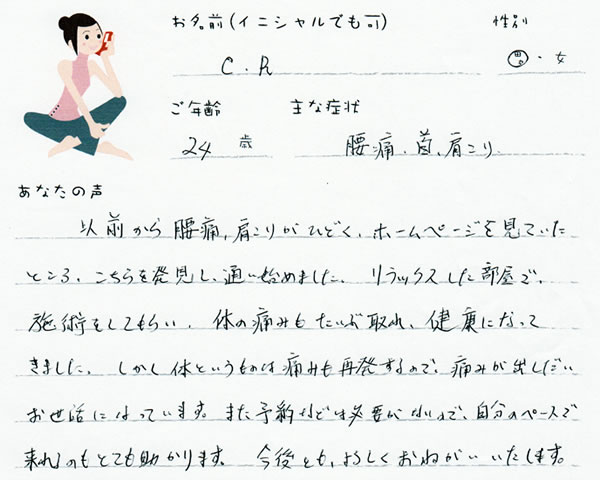 お名前(イニシャルでも可) 性別
C.R 男・女
ご年齢 主な症状
24 歳 腰痛、首、肩こり
あなたの声
以前から腰痛、肩こりがひどく、ホームページを見ていた
ところ、こちらを発見し、通い始めました。リラックスした部屋で、
施術をしてもらい、体の痛みもだいぶ取れ、健康になって
きました。しかし体というものは痛みも再発するので、痛みが出しだい
お世話になっています。また予約などは必要がないので、自分のペースで
来れるのもとても助かります。今後とも、よろしくおねがいいたします。